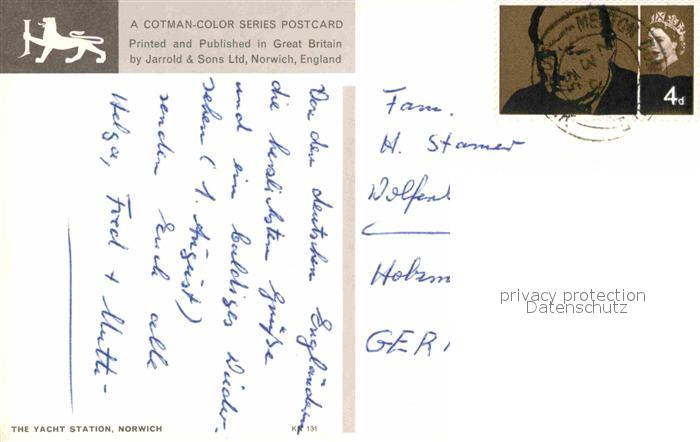 A COTMAN-COLOR SERIES POSTCARD
Printed and Published in Great Britain
by Jarrold & Sons Ltd, Norwich, England
4d
Von den deutschen Engländern
die herzlichsten Grüße
und ein baldiges Wieder-
sehen (1. August)
senden Euch alle
Helga, Fred + Mutti-
Fam.
H. Stamer
Wolfen
Holzm
GER
privacy protection
Datenschutz
THE YACHT STATION, NORWICH
131